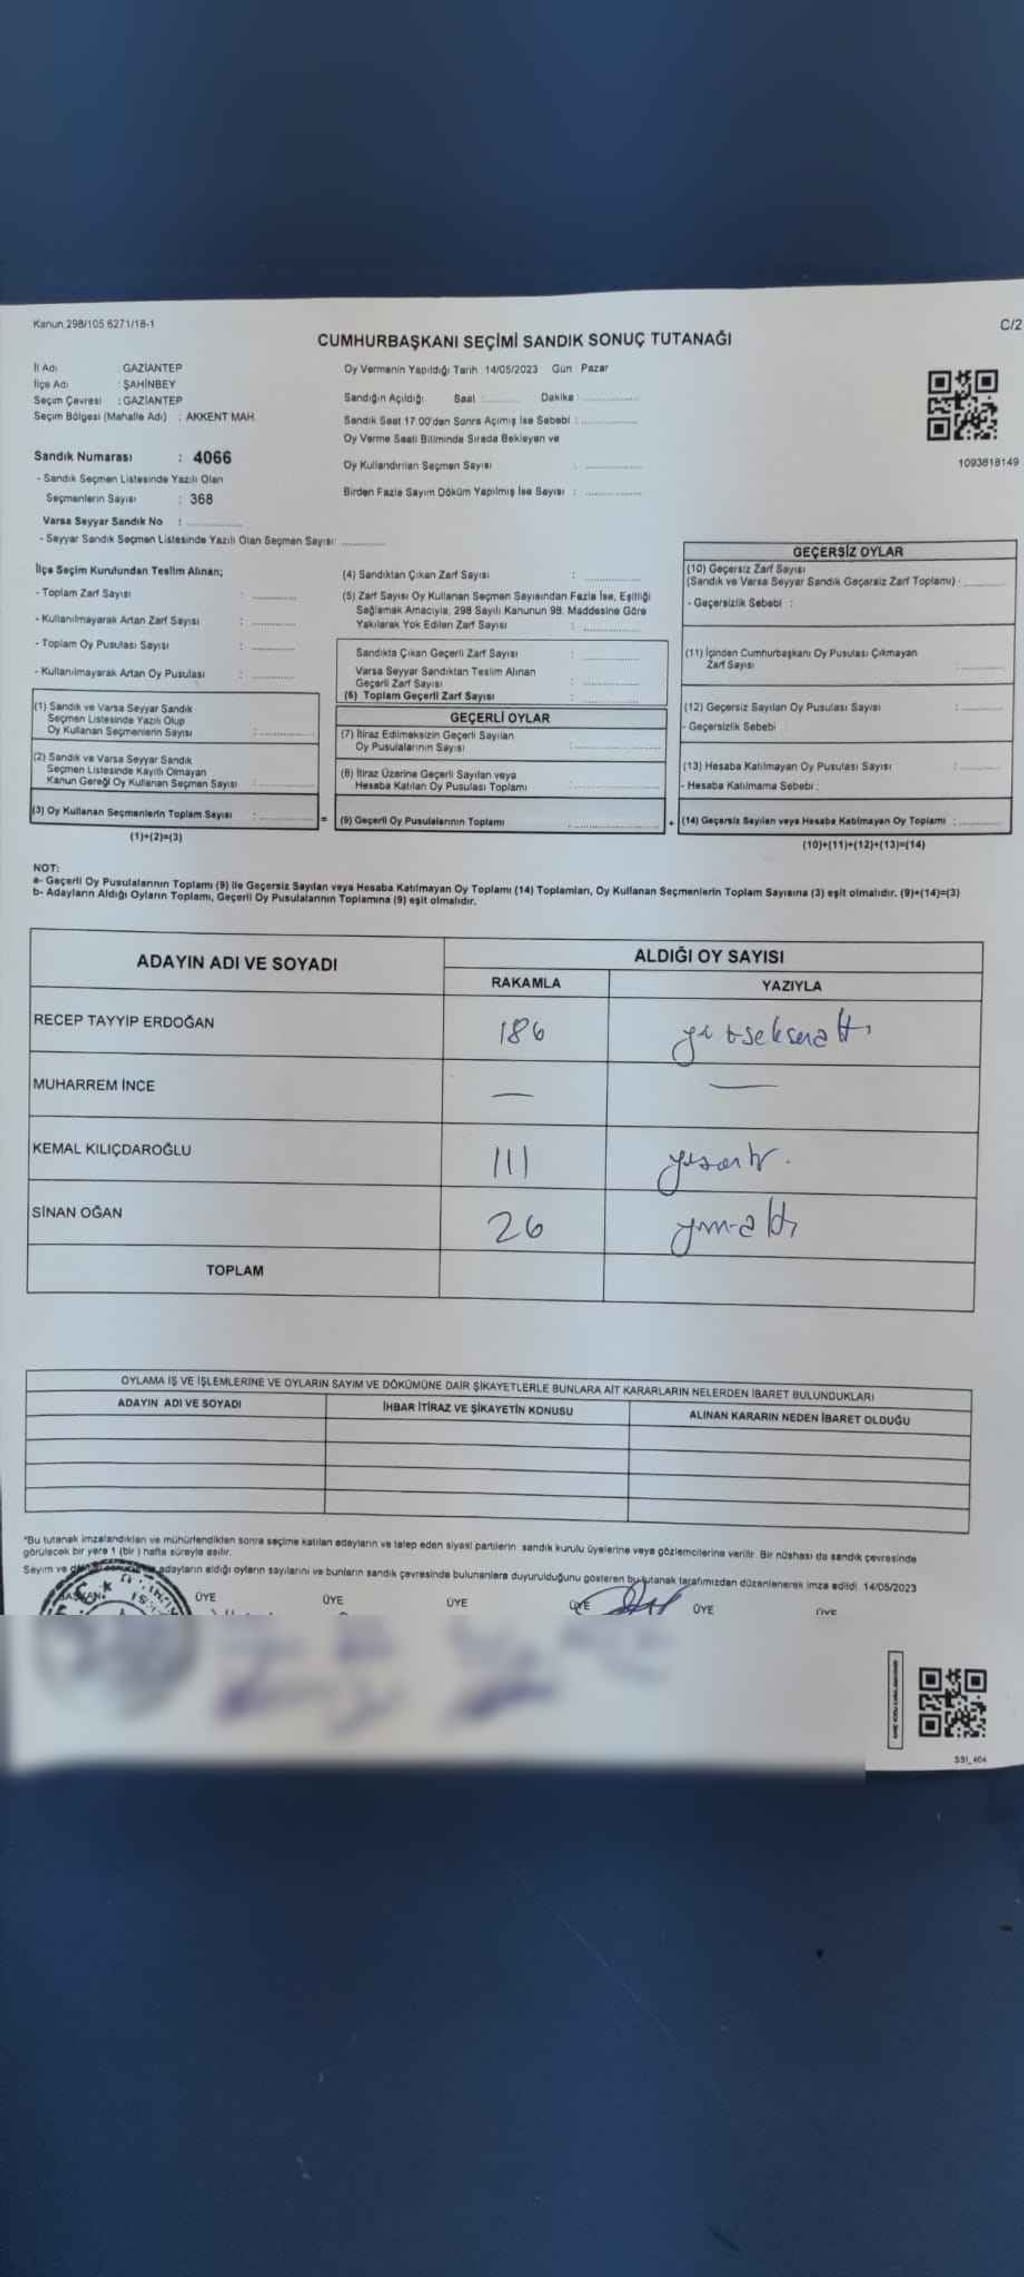 Kanun:298/105 6271/18-1
C/2
CUMHURBAŞKANI SEÇİMİ SANDIK SONUÇ TUTANAĞI
İl Adı : GAZİANTEP
İlçe Adı : ŞAHİNBEY
Seçim Çevresi : GAZİANTEP
Seçim Bölgesi (Mahalle Adı) : AKKENT MAH.
Oy Vermenin Yapıldığı Tarih 14/05/2023 Gün Pazar
Sandığın Açıldığı: Saat : Dakika :
Sandık Saat 17:00'dan Sonra Açılmış İse Sebebi :
Oy Verme Saati Bitiminde Sırada Bekleyen ve
Oy Kullandırılan Seçmen Sayısı :
Birden Fazla Sayım Döküm Yapılmış İse Sayısı :
1093818149
Sandık Numarası : 4066
- Sandık Seçmen Listesinde Yazılı Olan
Seçmenlerin Sayısı : 368
Varsa Seyyar Sandık No :
- Seyyar Sandık Seçmen Listesinde Yazılı Olan Seçmen Sayısı:
İlçe Seçim Kurulundan Teslim Alınan;
- Toplam Zarf Sayısı :
- Kullanılmayarak Artan Zarf Sayısı :
- Toplam Oy Pusulası Sayısı :
- Kullanılmayarak Artan Oy Pusulası :
(1) Sandık ve Varsa Seyyar Sandık
Seçmen Listesinde Yazılı Olup
Oy Kullanan Seçmenlerin Sayısı :
(2) Sandık ve Varsa Seyyar Sandık
Seçmen Listesinde Kayıtlı Olmayan
Kanun Gereği Oy Kullanan Seçmen Sayısı :
(3) Oy Kullanan Seçmenlerin Toplam Sayısı :
(1)+(2)=(3)
=
(4) Sandıktan Çıkan Zarf Sayısı :
(5) Zarf Sayısı Oy Kullanan Seçmen Sayısından Fazla İse, Eşitliği
Sağlamak Amacıyla, 298 Sayılı Kanunun 98. Maddesine Göre
Yakılarak Yok Edilen Zarf Sayısı :
Sandıkta Çıkan Geçerli Zarf Sayısı :
Varsa Seyyar Sandıktan Teslim Alınan
Geçerli Zarf Sayısı :
(6) Toplam Geçerli Zarf Sayısı :
GEÇERLİ OYLAR
(7) İtiraz Edilmeksizin Geçerli Sayılan
Oy Pusulalarının Sayısı :
(8) İtiraz Üzerine Geçerli Sayılan veya
Hesaba Katılan Oy Pusulası Toplamı :
(9) Geçerli Oy Pusulalarının Toplamı :
+
GEÇERSİZ OYLAR
(10) Geçersiz Zarf Sayısı
(Sandık ve Varsa Seyyar Sandık Geçersiz Zarf Toplamı) :
- Geçersizlik Sebebi :
(11) İçinden Cumhurbaşkanı Oy Pusulası Çıkmayan
Zarf Sayısı :
(12) Geçersiz Sayılan Oy Pusulası Sayısı :
- Geçersizlik Sebebi
(13) Hesaba Katılmayan Oy Pusulası Sayısı :
- Hesaba Katılmama Sebebi :
(14) Geçersiz Sayılan veya Hesaba Katılmayan Oy Toplamı :
(10)+(11)+(12)+(13)=(14)
NOT:
a- Geçerli Oy Pusulalarının Toplamı (9) ile Geçersiz Sayılan veya Hesaba Katılmayan Oy Toplamı (14) Toplamları, Oy Kullanan Seçmenlerin Toplam Sayısına (3) eşit olmalıdır. (9)+(14)=(3)
b- Adayların Aldığı Oyların Toplamı, Geçerli Oy Pusulalarının Toplamına (9) eşit olmalıdır.
ADAYIN ADI VE SOYADI ALDIĞI OY SAYISI
RAKAMLA YAZIYLA
RECEP TAYYİP ERDOĞAN 186 yüzseksenaltı
MUHARREM İNCE — —
KEMAL KILIÇDAROĞLU 111 yüzonbir.
SİNAN OĞAN 26 yirmialtı
TOPLAM
OYLAMA İŞ VE İŞLEMLERİNE VE OYLARIN SAYIM VE DÖKÜMÜNE DAİR ŞİKAYETLERLE BUNLARA AİT KARARLARIN NELERDEN İBARET BULUNDUKLARI
ADAYIN ADI VE SOYADI İHBAR İTİRAZ VE ŞİKAYETİN KONUSU ALINAN KARARIN NEDEN İBARET OLDUĞU
*Bu tutanak imzalandıktan ve mühürlendikten sonra seçime katılan adayların ve talep eden siyasi partilerin sandık kurulu üyelerine veya gözlemcilerine verilir. Bir nüshası da sandık çevresinde
görülecek bir yere 1 (bir) hafta süreyle asılır.
Sayım ve adayların aldığı oyların sayılarını ve bunların sandık çevresinde bulunanlara duyurulduğunu gösteren bu tutanak tarafımızdan düzenlenerek imza edildi. 14/05/2023
BAŞKAN ÜYE ÜYE ÜYE ÜYE ÜYE ÜYE
SSI_404